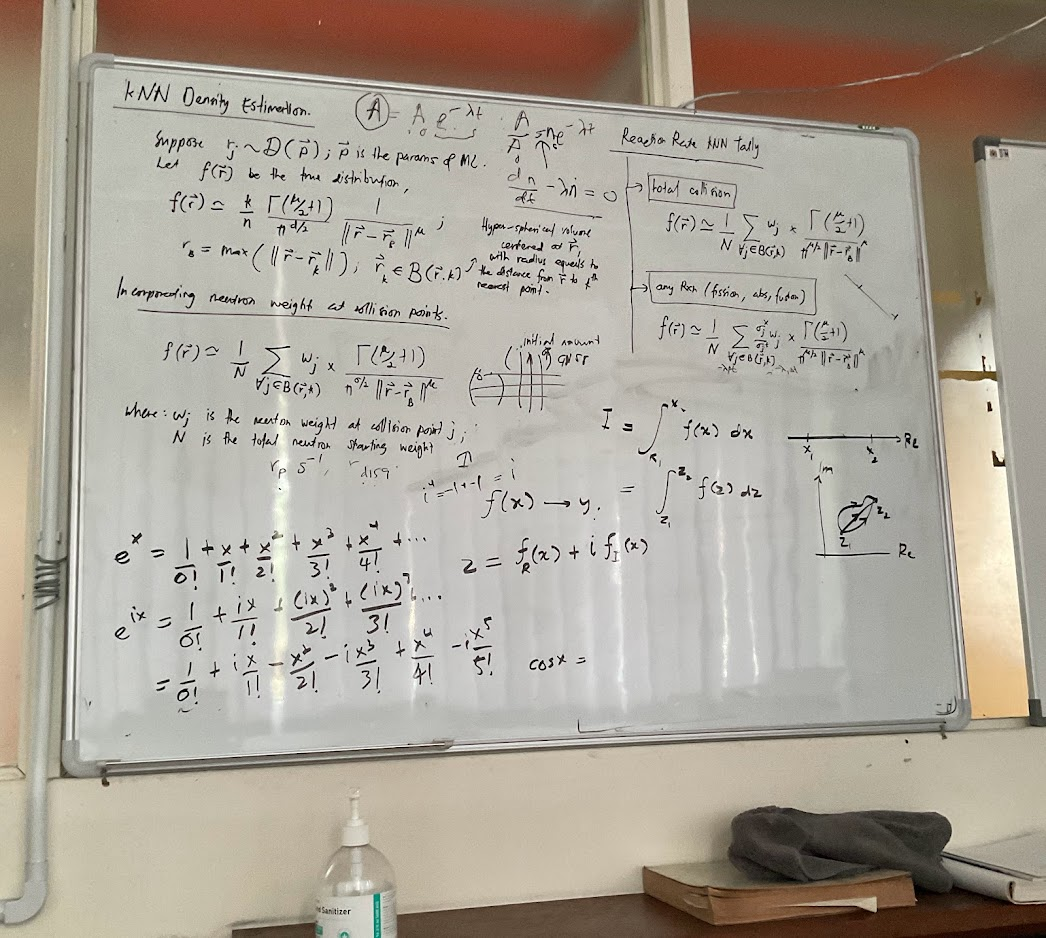 kNN Density Estimation.
Suppose r_j ~ D(p⃗); p⃗ is the params of ML.
Let f(r⃗) be the true distribution,
f(r⃗) ≃ k/n Γ(μ/2+1)/π^{d/2} 1/‖r⃗ - r⃗_B‖^μ ;
r_B = max(‖r⃗ - r⃗_k‖); r⃗_k ∈ B(r⃗,k)
Hyper-spherical volume
centered at r⃗,
with radius equals to
the distance from r⃗ to kth
nearest point.
Incorporating neutron weight at collision points.
f(r⃗) ≃ 1/N Σ_{∀j∈B(r⃗,k)} w_j × Γ(μ/2+1)/π^{d/2} ‖r⃗ - r⃗_B‖^μ
where: w_j is the neutron weight at collision point j;
N is the total neutron starting weight
A = A_0 e^{-λt}
dn/dt - λn = 0
initial amount
Reaction Rate kNN tally
total collision
f(r⃗) ≃ 1/N Σ_{∀j∈B(r⃗,k)} w_j × Γ(μ/2+1)/π^{μ/2} ‖r⃗ - r⃗_B‖^μ
any Rxn (fission, abs, fusion)
f(r⃗) ≃ 1/N Σ_{∀j∈B(r⃗,k)} σ_j^x/σ_j^t w_j × Γ(μ/2+1)/π^{μ/2} ‖r⃗ - r⃗_B‖^μ
I = ∫_{x_1}^{x_2} f(x) dx
x_1 x_2 Re
f(x) → y.
= ∫_{z_1}^{z_2} f(z) dz
Im
z_2
z_1
Re
z = f_R(x) + i f_I(x)
e^x = 1/0! + x/1! + x^2/2! + x^3/3! + x^4/4! + ...
e^{ix} = 1/0! + ix/1! + (ix)^2/2! + (ix)^3/3! + ...
= 1/0! + ix/1! - x^2/2! - i x^3/3! + x^4/4! - i x^5/5!
cos x =
Sanitizer